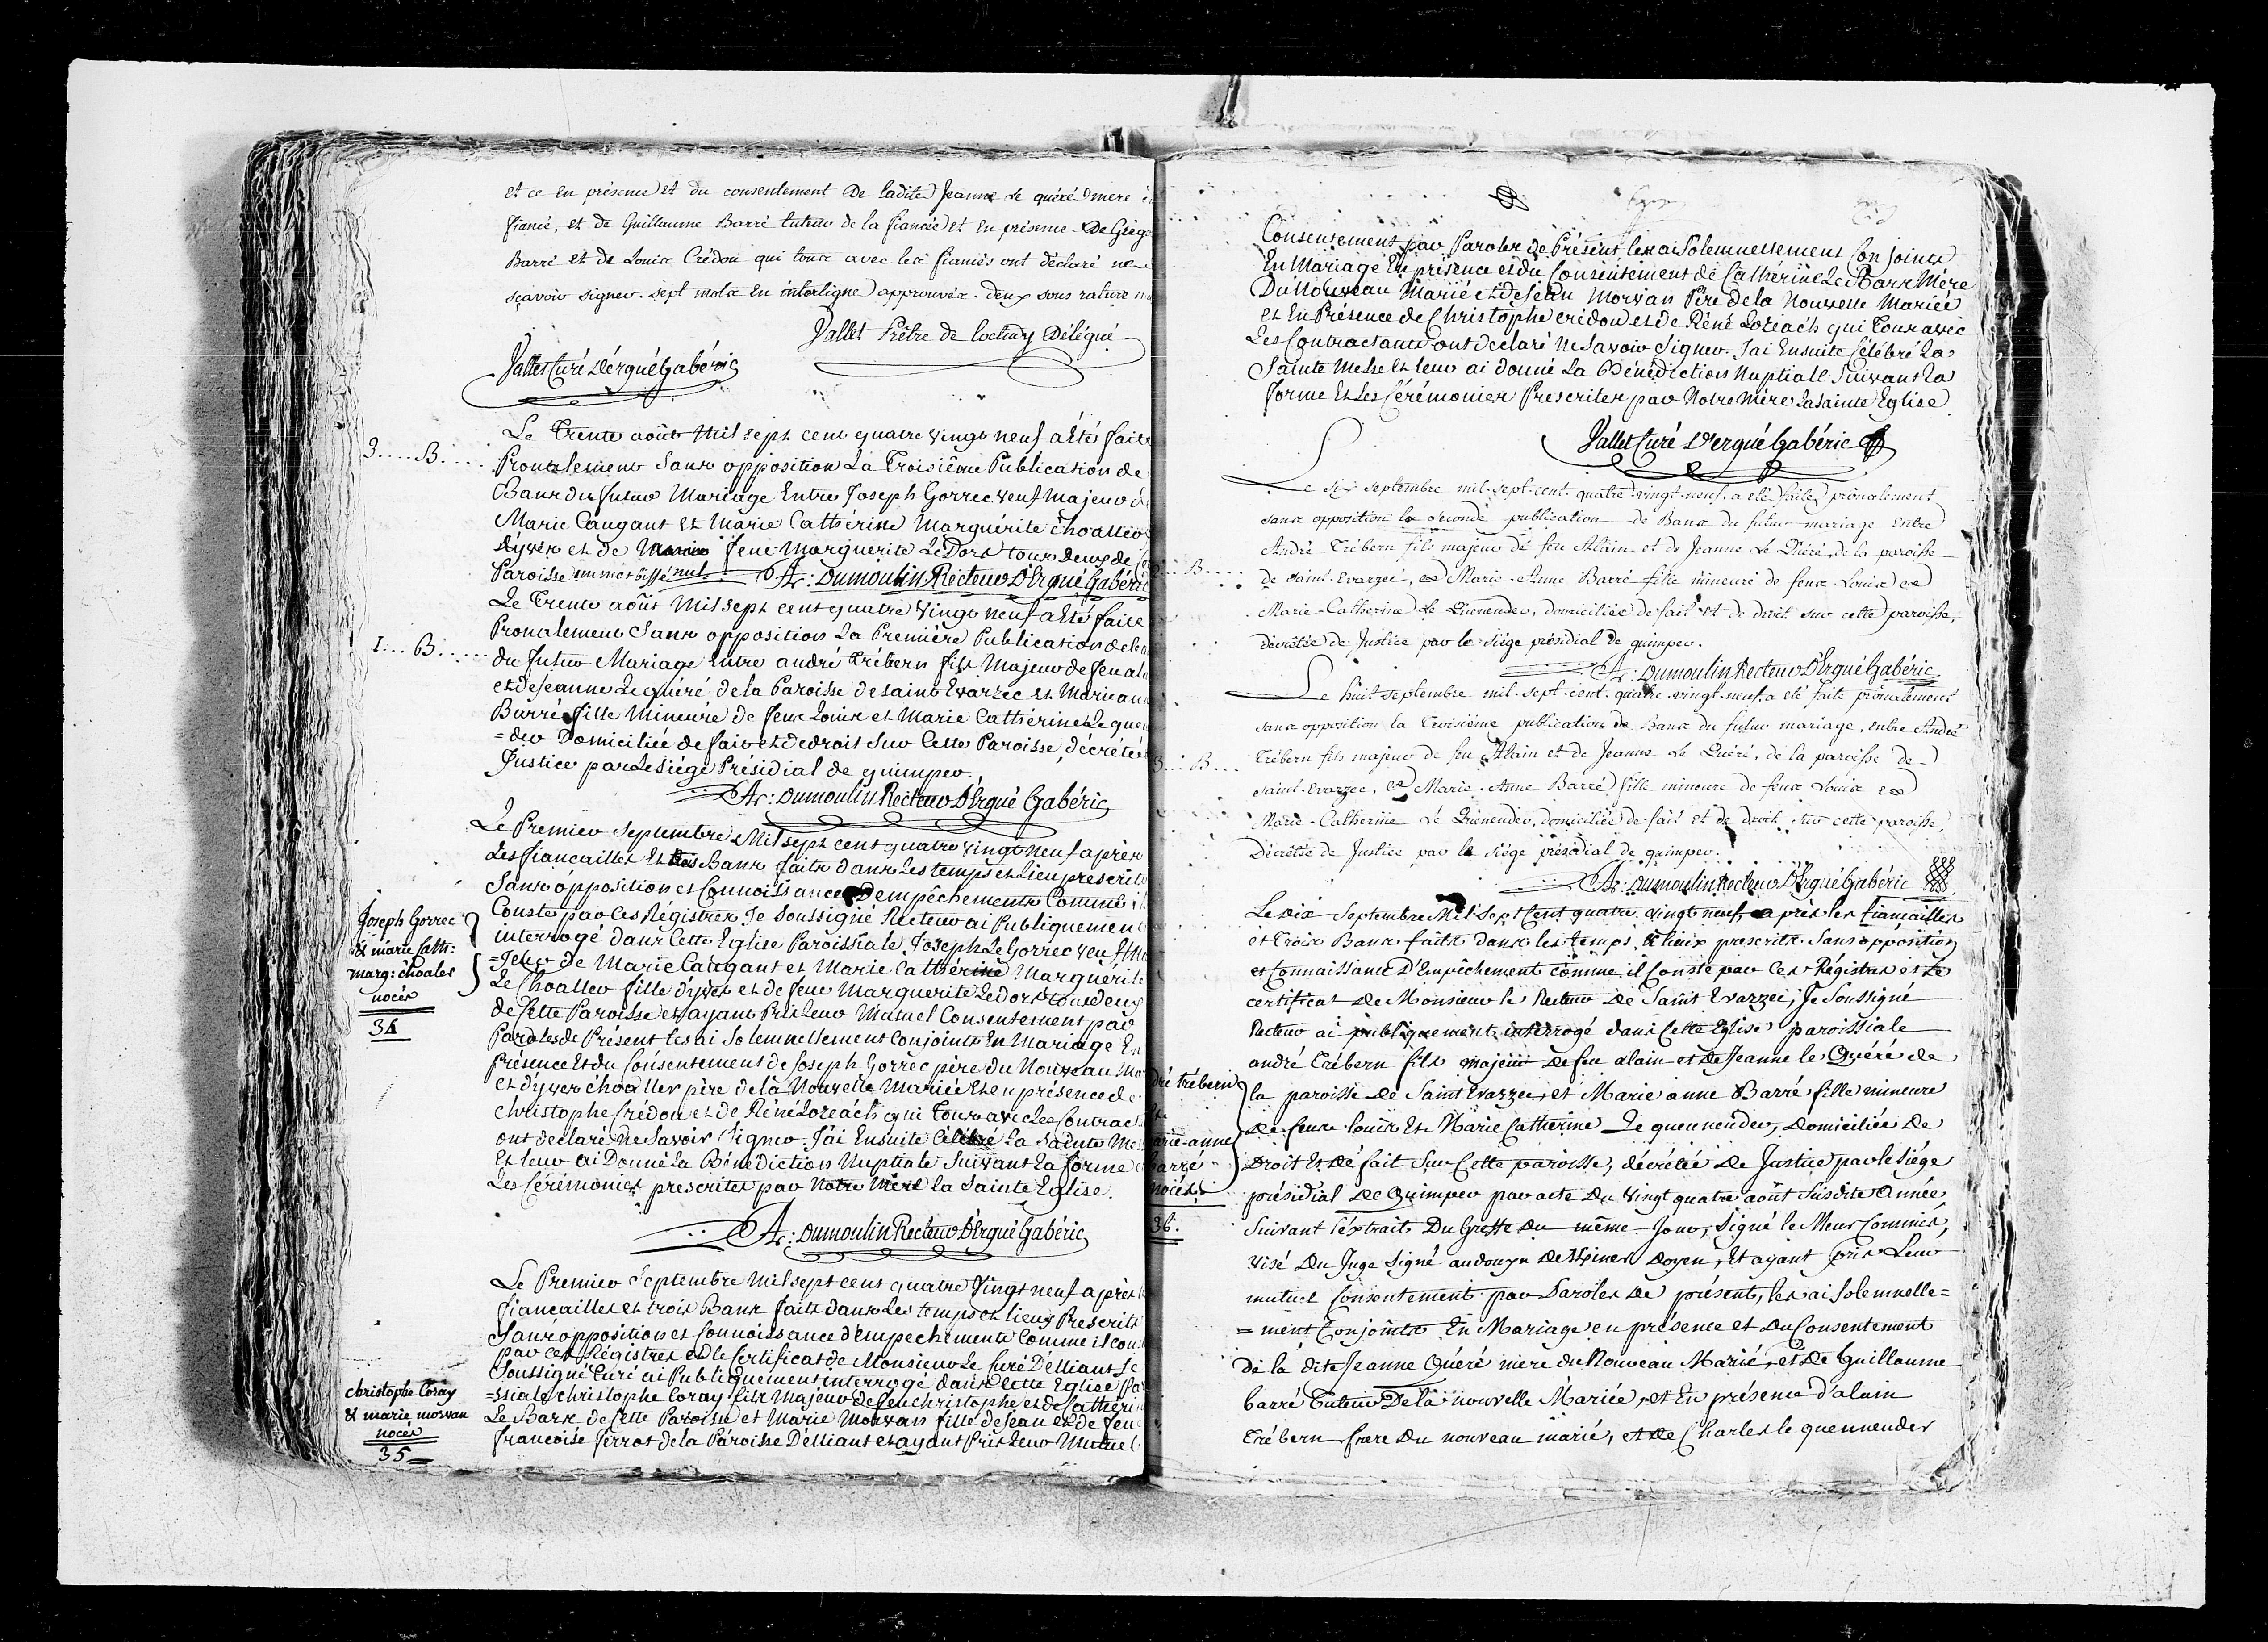 et ce en présence et du consentement De ladite Jeanne Le quéré mere
fiancé, et de Guillaume Barré tuteur de la fiancée et en présence De Grég
Barré et de Louise Crédou qui tous avec les fiancés ont déclaré ne
sçavoir signer. sept mots en interligne approuvés. deux sous rature
Jallet Prêtre de loctudy Délégué
Jallet Curé d'ergué Gabéric
3.... B....
Le Trente août Mil sept cent quatre vingt neuf a Eté faite
Pronalement Sans opposition La Troisième Publication de
Bans du futur Mariage Entre Joseph Gorrec veuf Majeur de
Marie Caugant et Marie Cathérine Marguérite choaller
d'yves et de feue Marguerite Le Dors tous deux de
Paroisse un mot biffé nul. A: Dumoulin Recteur D'Ergué Gabéric
1.... B....
Le Trente août Mil sept cent quatre Vingt neuf a Eté faite
Pronalement Sans opposition La Première Publication de
du futur Mariage Entre andré Trébern fils Majeur de feu al
et de Jeanne Le quéré de la Paroisse de saint Evarzec et Marie an
Barré fille Mineure de feux Louis et Marie Cathérine Le quen
=der Domiciliée de fait et de droit Sur Cette Paroisse, décrétée
Justice par Le siége Présidial de quimper.
A: Dumoulin Recteur D'Ergué Gabéric
Joseph Gorrec
& marie Cath:
marg: choaler
noces
34
Le Premier Septembre Mil sept cent quatre vingt neuf après
Les fiancailles Et trois Bans faits dans Les temps et Lieu prescrits
Sans opposition et Connoissance D'empêchements Comme il
Conste par Ces Régistres Je Soussigné Recteur ai Publiquement
interrogé dans Cette Eglise Paroissiale Joseph Le Gorrec veuf Ma
=jeur de Marie Caugant et Marie Cathérine Marguérite
Le Choaller fille d'yves et de feue Marguerite Le dors tous deux
de Cette Paroisse et ayant Pris Leur Mutuel Consentement par
Paroles de Présent Les ai Solemnellement Conjoints En Mariage En
Présence Et du Consentement de Joseph Gorrec père du Nouveau Ma
et d'yves choaller père de la Nouvelle Mariée Et en présence de
christophe Crédou et de Réné Lozeach qui Tous avec Les Contrac
ont declaré ne Savoir Signer. J'ai Ensuite Célébré La sainte Me
Et leur ai Donné La Bénédiction Nuptiale Suivant La forme
Les Cérémonies prescrites par Notre Mère la Sainte Eglise.
A: Dumoulin Recteur D'Ergué Gabéric
christophe Coray
& marie morvan
noces
35
Le Premier Septembre Mil sept cent quatre Vingt neuf après
fiancailles et trois Bans faits dans Les temps et lieux Prescrits
Sans opposition et Connoissance d'empechements Comme il con
par ces Régistres et le Certificat de Monsieur Le Curé D'elliant Je
Soussigné Curé ai Publiquement interrogé dans Cette Eglise Pa
=ssiale christophe Coray fils Majeur de feu christophe et de Catherin
Le Bars de Cette Paroisse et Marie Morvan fille de Jean et de feue
francoise ferrot de la Paroisse D'elliant et ayant Pris Leur Mutuel
Consentement par Paroles de Présent les ai Solemnellement Conjoints
En Mariage En présence et du Consentement de Cathérine Le Bars Mère
Du Nouveau Marié et de Jean Morvan Père de la Nouvelle Mariée
et En Présence de Christophe crédou et de Réné Lozeach qui Tous avec
Les Contractants ont declaré Ne Savoir Signer. J'ai Ensuite Célébré La
Sainte Messe et leur ai donné La Bénédiction Nuptiale Suivant La
forme Et Les Cérémonies Prescrites par Notre Mère La Sainte Eglise
Jallet Curé D'ergué Gabéric
B....
Le six Septembre mil-sept-cent-quatre-vingt-neuf a eté faite prônalement
sans opposition la seconde publication de Bans du futur mariage entre
André Trébern fils majeur de feu Alain et de Jeanne Le Quéré, de la paroisse
de saint-Evarzec, et Marie-Anne Barré fille mineure de feux Louis et
Marie-Catherine Le Quenender, domiciliée de fait et de droit sur cette paroisse,
décrêtée de Justice par le siége présidial de quimper.
A: Dumoulin Recteur D'Ergué Gabéric
3... B...
Le huit septembre mil-sept-cent-quatre-vingt-neuf a eté faite prônalement
sans opposition la Troisiéme publication de Bans du futur mariage, entre André
Trébern fils majeur de feu Alain et de Jeanne Le Quéré, de la paroisse de
saint-Evarzec, et Marie-Anne Barré fille mineure de feux Louis et
Marie-Catherine Le Quenender, domiciliée de fait et de droit sur cette paroisse,
Décrêtée de Justice par le siége présidial de quimper.
A: Dumoulin Recteur D'Ergué Gabéric
dré trébern
et
arie-anne
barré
noces
36.
Le dix Septembre Mil Sept Cent quatre vingt neuf après les fiancailles
et Trois Bans faits dans les temps & lieux prescrits Sans opposition
et Connaissance D'Empêchement comme il Conste par Ces Régistres et le
certificat de Monsieur le Recteur De Saint Evarzec, Je Soussigné
Recteur ai publiquement interrogé dans Cette Eglise paroissiale
andré Trébern fils majeur de feu alain et de Jeanne le Quéré de
la paroisse de Saint Evarzec, et Marie anne Barré fille mineure
de feux louis Et Marie Catherine Le quennender, Domiciliée De
Droit Et De fait Sur Cette paroisse, décrétée de Justice par le Siége
présidial De Quimper par acte Du Vingt quatre août Susdite Année,
Suivant l'extrait Du Greffe du même Jour, Signé le Meur Commis,
visé Du Juge Signé audouyn Doyen, Et ayant pris Leur
mutuel Consentement par Paroles De présent, les ai Solemnelle=
=ment Conjoints En Mariage en présence et du Consentement
de la dite Jeanne Quéré mere du Nouveau Marié, et De Guillaume
barré Tuteur De la nouvelle Mariée, et En présence d'alain
Trébern frere Du nouveau marié, et de Charles le quennender